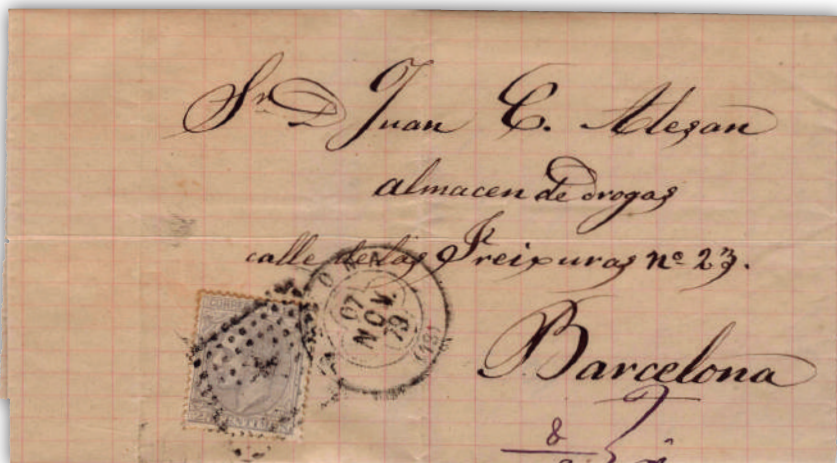 Sr. D. Juan C. Alesan
almacen de drogas
calle de las Freixuras nº 23.
Barcelona
07
NOV.
79
(18)
8